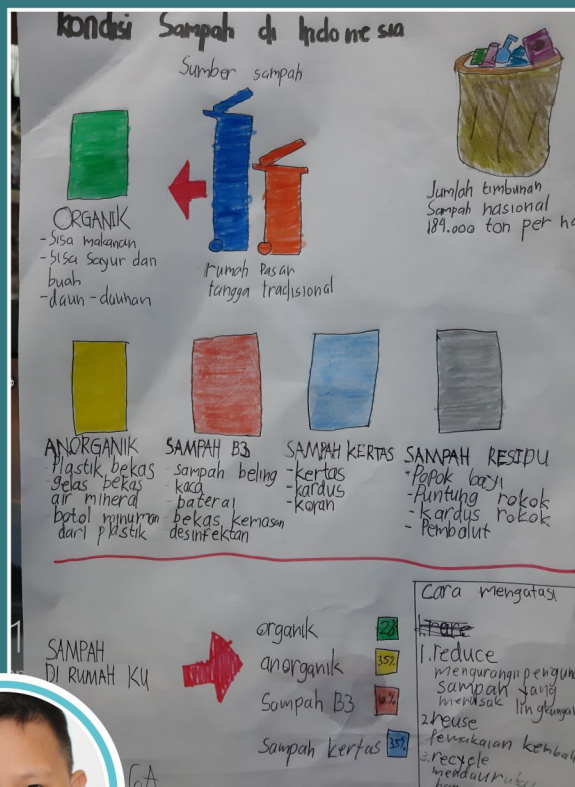 Kondisi Sampah di Indonesia
Sumber sampah
ORGANIK
- Sisa makanan
- Sisa Sayur dan
buah
- daun - daunan
rumah Pasar
tangga tradisional
Jumlah timbunan
Sampah nasional
184.000 ton per
ANORGANIK
- Plastik bekas
- gelas bekas
air mineral
botol minuman
dari plastik
SAMPAH B3
- sampah beling
- kaca
- baterai
bekas kemasan
desinfektan
SAMPAH KERTAS
- kertas
- kardus
- koran
SAMPAH RESIDU
- Popok bayi
- Puntung rokok
- kardus rokok
- Pembalut
SAMPAH
DI RUMAH KU
organik
anorganik 35%
Sampah B3
Sampah kertas 35%
Cara mengatasi
1. reduce
mengurangi
sampah yang
merusak
2. reuse
Pemakaian
3. recycle
6A